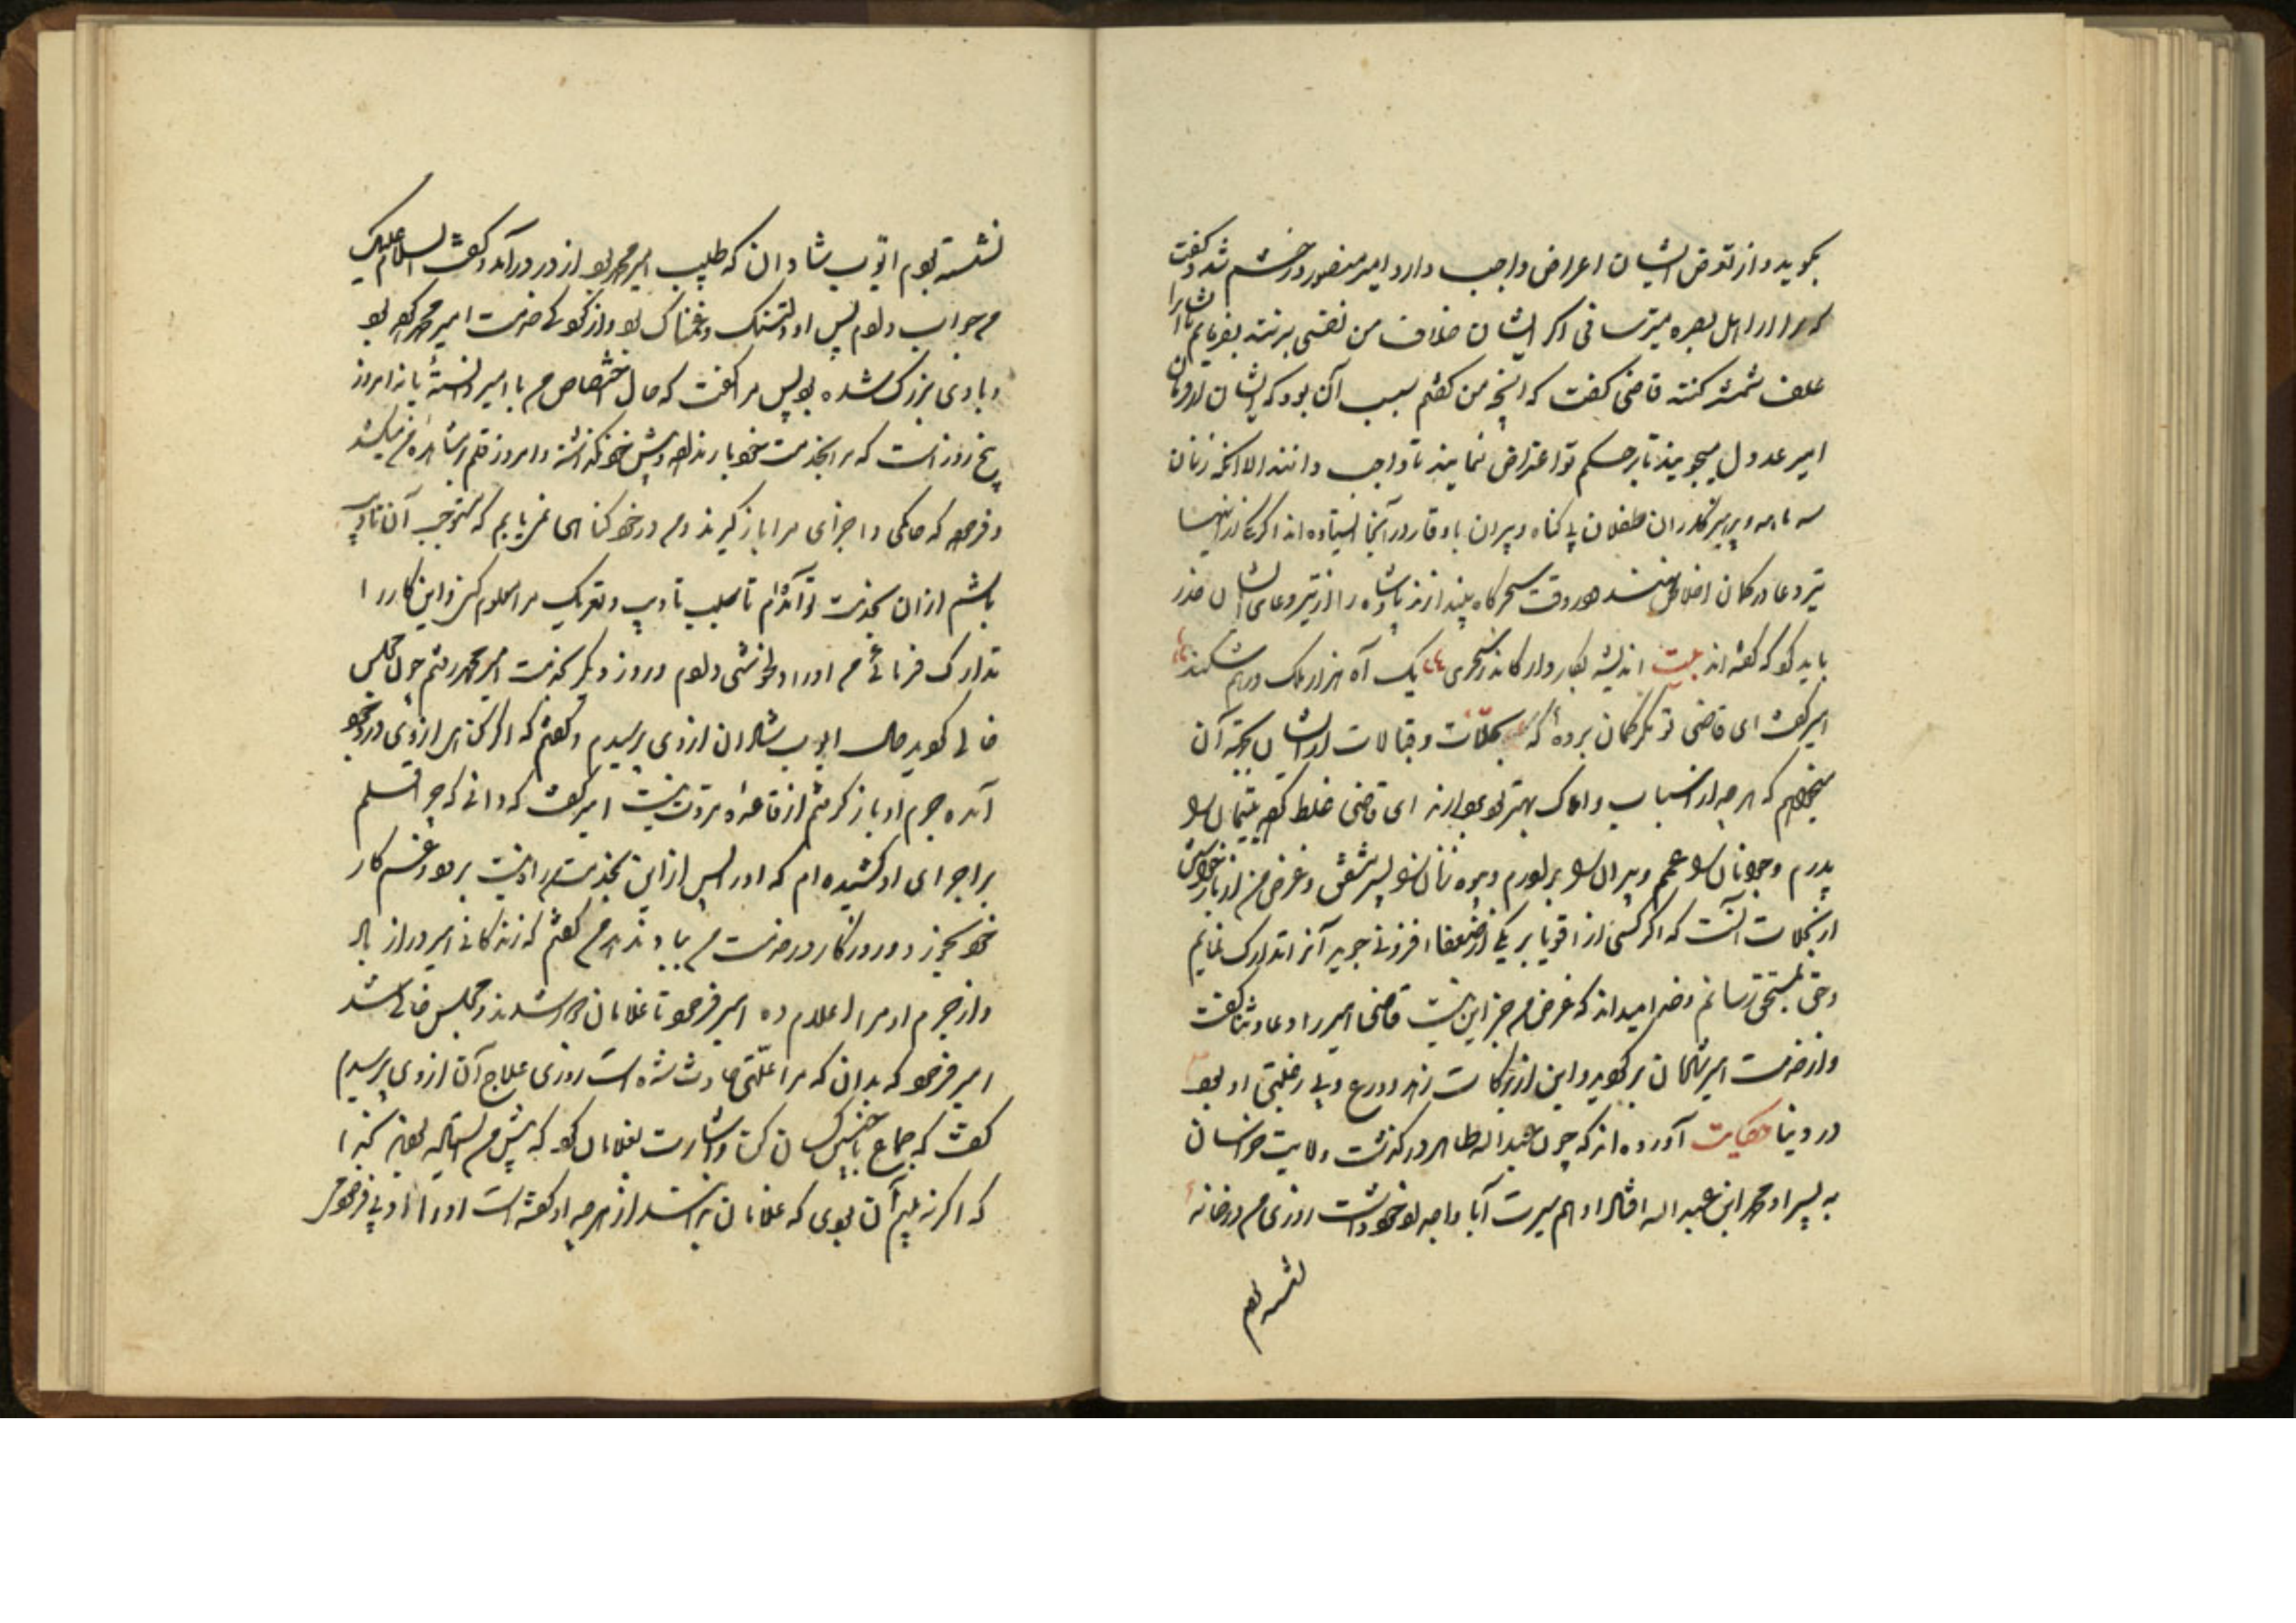 بجوید و از تعرض ایشان اعراض واجب دارد امیر منصور در خشم شد و گفت
که مرا از اهل بصره میترسانی اگر ایشان خلاف من نفسی برنند بفرمایم تا ایشانرا
علف شمشیر کنند قاضی گفت که آنچه من گفتم سبب آن بود که ایشان
امیر عدول میجویند تا بر حکم تو اعتراض نمایند تا واجب دانند الا آنکه زنان
سیه جامه و بی پدران طفلان بی گناه و پیران با وقار در آنجا ایستاده اند اگر
تیر دعا در کمان اخلاص نهند و در وقت سحرگاه بیندازند پادشاه را از تیر دعای ایشان حذر
باید کرد که گفته اند بیت اندیشه بکار دار کاندر سحری یک آه هزار ملک درهم شکند
امیر گفت ای قاضی تو مگر گمان برده که سجلات و قبالات از ایشان بجهة آن
میخواهم که هر چه از اسباب و املاک بهتر بود بردارم ای قاضی غلط کرده یتیمان را
پدرم و جوانان را عمم و پیران را برادرم و بیوه زنان را پسر مشفق و غرض من از باز خواستن
از سجلات آنست که اگر کسی از اقویا بر یکی از ضعفا افزونی جوید آنرا تدارک نمایم
و حق بمستحق رسانم و خدا میداند که غرض من جز این نیست قاضی امیر را دعا و ثنا گفت
و از خدمت امیر شادمان برگردید و این از برکات زهد و ورع و بی رغبتی او بود
در دنیا حکایت آورده اند که چون عبد الله طاهر درگذشت ولایت خراسان
به پسر او محمد ابن عبد الله افتاد او هم سیرت آبا و اجداد خود داشت روزی من در خانه
نشسته بودم
نشسته بودم ایوب شادان که طبیب امیر محمد بود از در درآمد و گفت السلام علیک
من جواب دادم پس او دلتنگ و غمناک بود و از کودکی خدمت امیر محمد کرده بود
و با وی بزرگ شده بود پس مرا گفت که حال اختصاص من با امیر دانسته یا نه امروز
پنج روز است که مرا بخدمت خود بار نداد و پیش خود نگذاشته و امروز قلم بر مشاهره من میکشد
و فرموده که جامگی و اجرای مرا باز گیرند و من در خود گناهی نمی یابم که مستوجب آن تادیب
باشم از آن بخدمت تو آمده ام تا سبب تادیب و تعریک مرا معلوم کنی و این کار را
تدارک فرمائی من او را دلخوشی دادم و روز دیگر بخدمت امیر محمد رفتم چون مجلس
خالی گردید حال ایوب شادان از وی پرسیدم و گفتم که اگر گناهی از وی در وجود
آمده جرم او باز گرفتن از قاعده مروت نیست امیر گفت که دانی که چرا قلم
بر اجرای او کشیده ام که او را پس از این بخدمت راه نیست برود و غم کار
خود بخورد و روزگار در خدمت من بباد ندهد من گفتم که زندگانی امیر دراز باد
و از جرم او مرا اعلام ده امیر فرمود تا غلامان دور شدند و مجلس خالی شد
امیر فرمود که بدان که مرا علتی حادث شده است روزی علاج آن از وی پرسیدم
گفت که جماع با خفتن کسان کن و اشارت بغلامان کرد که پیش من ایستاده بودند
که اگر نه بیم آن بودی که غلامان بدانستندی از هر چه او گفته است او را ادبی فرمودمی